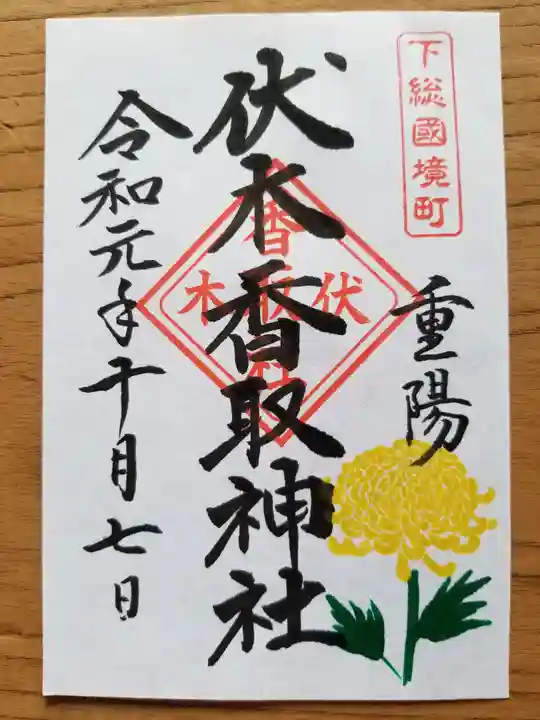 下総國境町
重陽
伏木香取神社
伏木
香取
令和元年十月七日